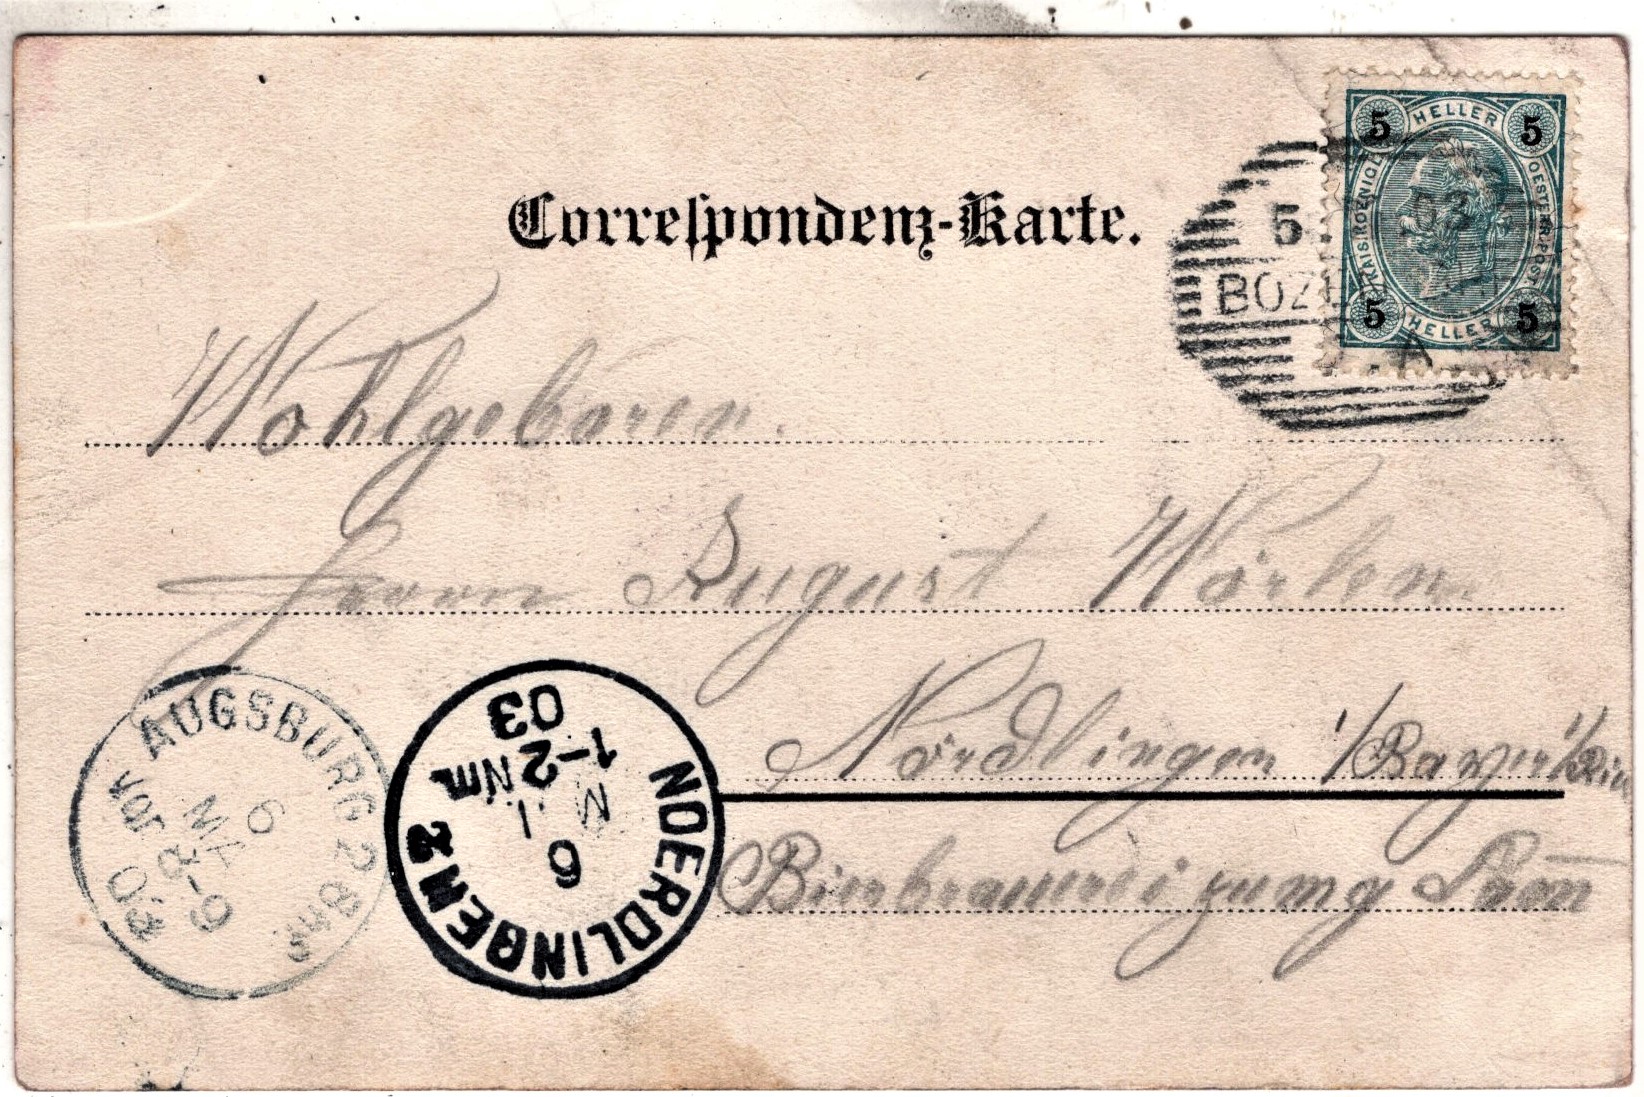 Correspondenz-Karte.
5 HELLER 5
KAIS. KOENIGL. OESTERR. POST
5 HELLER 5
5 03
BOZEN
A
Wohlgeboren.
Herrn August Wörlen
Nördlingen i/Bayern i/Ries
Bierbrauerei zum g
AUGSBURG 2
6
NOERDLINGEN 2
6
1-2 Nm.
03